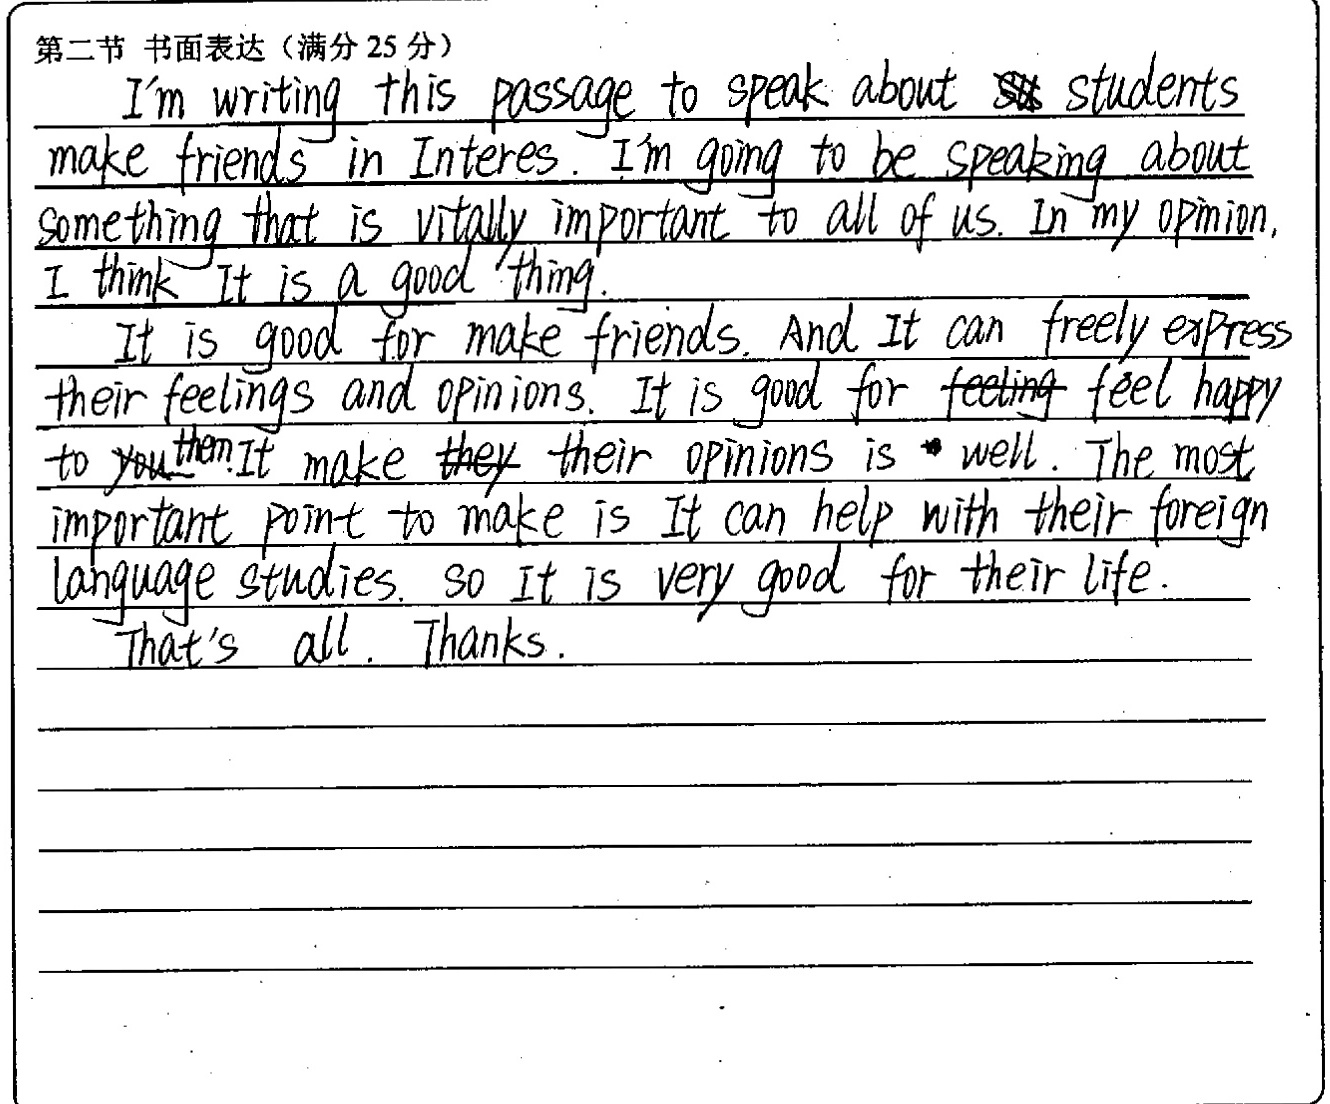 第二节 书面表达（满分 25 分）
I'm writing this passage to speak about students
make friends in Interes. I'm going to be speaking about
something that is vitally important to all of us. In my opinion,
I think It is a good thing.
It is good for make friends. And It can freely express
their feelings and opinions. It is good for feeling feel happy
to you them. It make they their opinions is well. The most
important point to make is It can help with their foreign
language studies. so It is very good for their life.
That's all. Thanks.